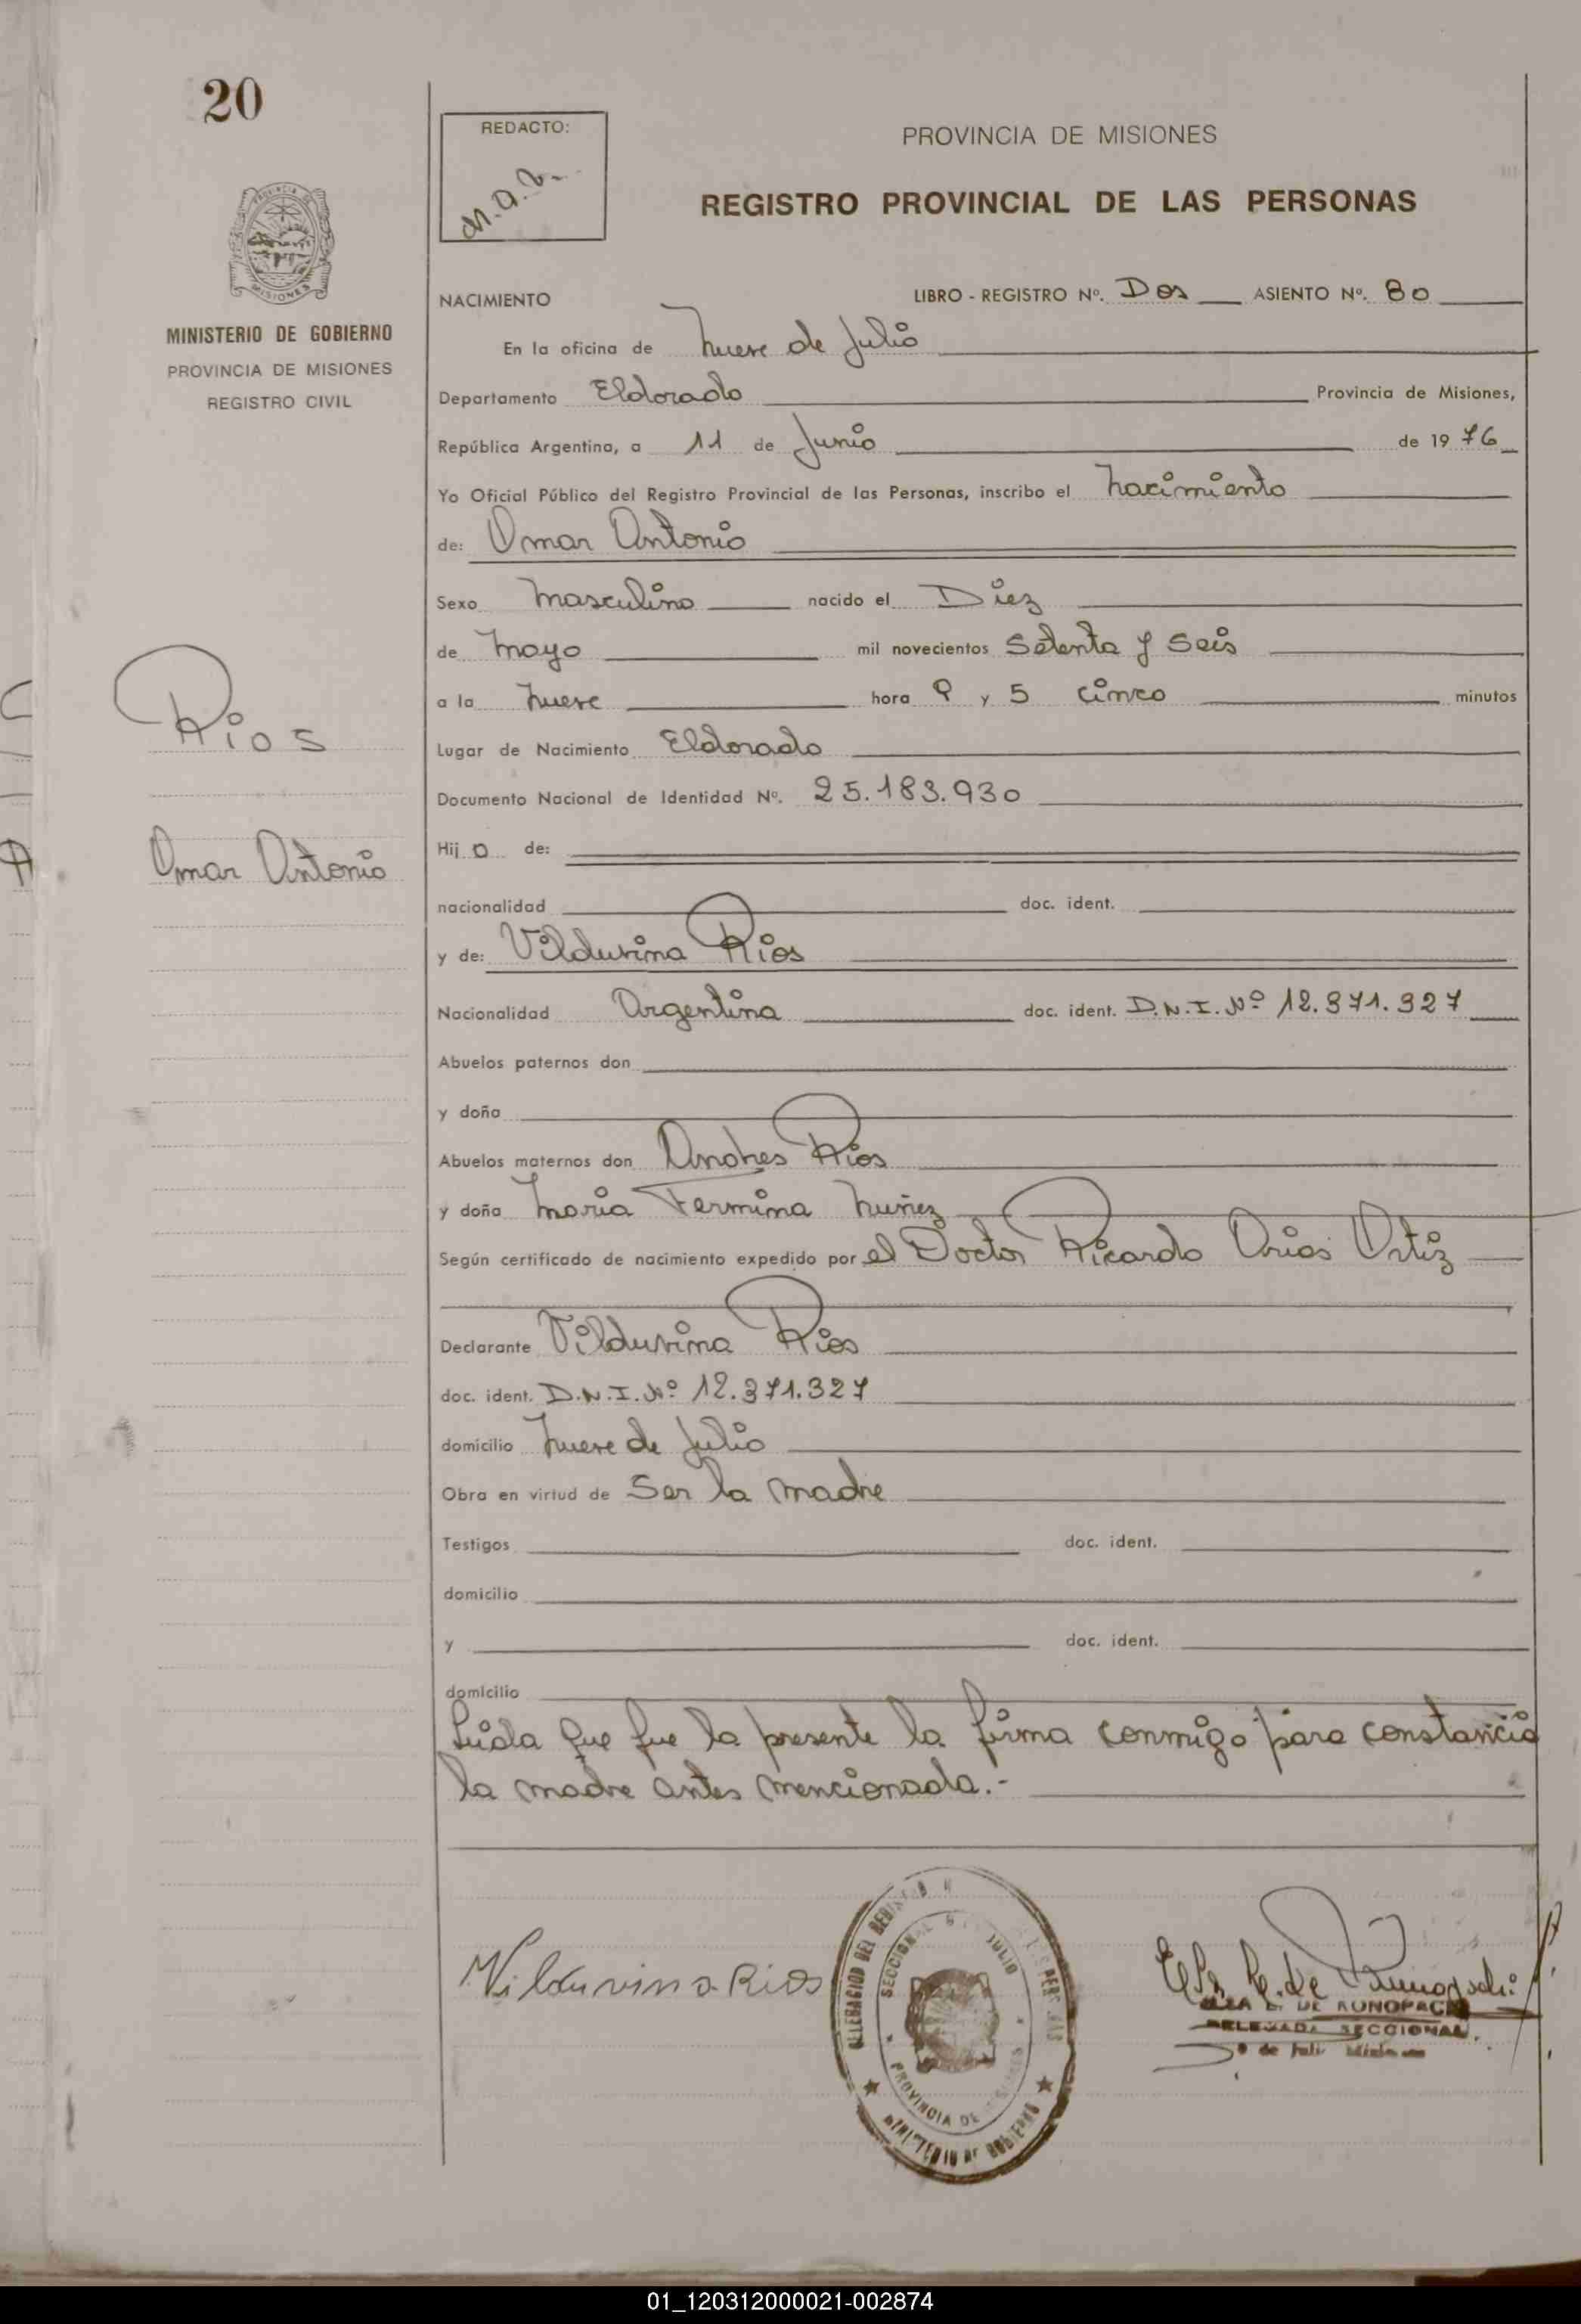 20
REDACTO:
M.A.R.
PROVINCIA DE MISIONES
REGISTRO PROVINCIAL DE LAS PERSONAS
PROVINCIA DE
MISIONES
MINISTERIO DE GOBIERNO
PROVINCIA DE MISIONES
REGISTRO CIVIL
NACIMIENTO LIBRO - REGISTRO Nº. Dos ASIENTO Nº. 80
En la oficina de Nueve de Julio
Departamento Eldorado Provincia de Misiones,
República Argentina, a 11 de Junio de 1976
Yo Oficial Público del Registro Provincial de las Personas, inscribo el Nacimiento
de: Omar Antonio
Sexo Masculino nacido el Diez
de Mayo mil novecientos Setenta y Seis
a la Nueve hora 9 y 5 cinco minutos
Rios
Lugar de Nacimiento Eldorado
Documento Nacional de Identidad Nº. 25.183.930
Omar Antonio
Hijo de:
nacionalidad doc. ident.
y de: Vilduvina Rios
Nacionalidad Argentina doc. ident. D.N.I. Nº 12.371.327
Abuelos paternos don
y doña
Abuelos maternos don Andres Rios
y doña Maria Fermina Nuñez
Según certificado de nacimiento expedido por el Doctor Ricardo Arias Ortiz
Declarante Vilduvina Rios
doc. ident. D.N.I. Nº 12.371.327
domicilio Nueve de Julio
Obra en virtud de Ser la madre
Testigos doc. ident.
domicilio
y doc. ident.
domicilio
Leida que fue la presente la firma conmigo para constancia
la madre antes mencionada.-
Vilduvina Rios
DELEGACION DEL REGISTRO
SECCIONAL 9 JULIO
PROVINCIA DE MISIONES
MINISTERIO DE GOBIERNO
DE
DELEGADA SECCIONAL
9 de Julio Misiones
01_120312000021-002874